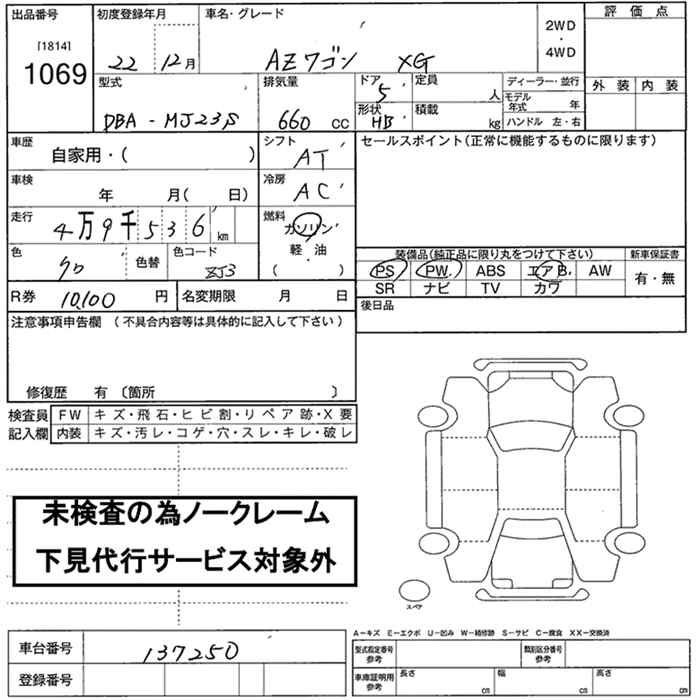 出品番号 初度登録年月 車名・グレード 2WD ・ 4WD 評価点
[1814]
1069 22 12月 AZワゴン XG 外装 内装
型式 排気量 ドア 定員 ディーラー・並行
5 人 モデル年式 年
DBA-MJ23S 660 cc 形状 積載 ハンドル 左・右
HB kg
車歴 自家用・( ) シフト AT セールスポイント(正常に機能するものに限ります)
車検 年 月( 日) 冷房 AC
走行 4万9千536km 燃料 ガソリン
軽・油
( ・ )
色 クロ 色替 色コード ZJ3
装備品(純正品に限り丸をつけて下さい) 新車保証書
PS PW ABS エアB AW 有・無
SR ナビ TV カワ
R券 10,100 円 名変期限 月 日 後日品
注意事項申告欄 (不具合内容等は具体的に記入して下さい)
修復歴 有 〔箇所 〕
検査員 FW キズ・飛石・ヒビ割・リペア跡・X要
記入欄 内装 キズ・汚レ・コゲ・穴・スレ・キレ・破レ
未検査の為ノークレーム
下見代行サービス対象外
スペア
A-キズ E-エクボ U-凹み W-補修跡 S-サビ C-腐食 XX-交換済
車台番号 137250 型式指定番号 参考 類別区分番号 参考
登録番号 車庫証明用 参考 長さ cm 幅 cm 高さ cm